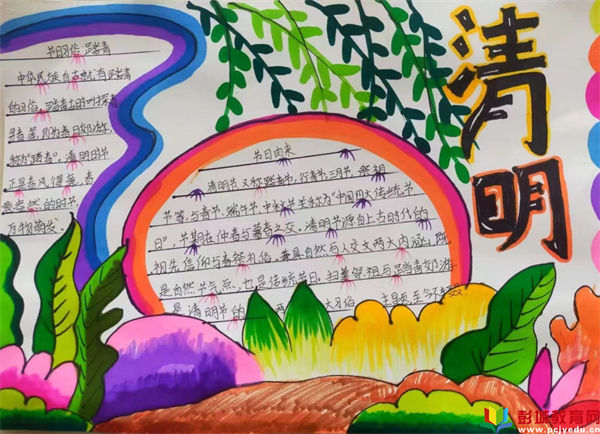 清明
节日习俗踏青
中华民族自古就有踏青
的习俗,踏青古时叫探春
寻春等,即为春日郊游,
也称"踏春"。清明时节
正是春风得意,春
意盎然的时节,
万物萌发。
节日由来
清明节,又称踏青节、行清节、三月节、祭祖
节等,与春节、端午节、中秋节并称为"中国四大传统节
日"。节期在仲春与暮春之交。清明节源自上古时代的
祖先信仰与春祭礼俗,兼具自然与人文两大内涵,既
是自然节气点,也是传统节日。扫墓祭祖与踏青郊游
是清明节的两大
彭城教育网
www.pcjyedu.cn